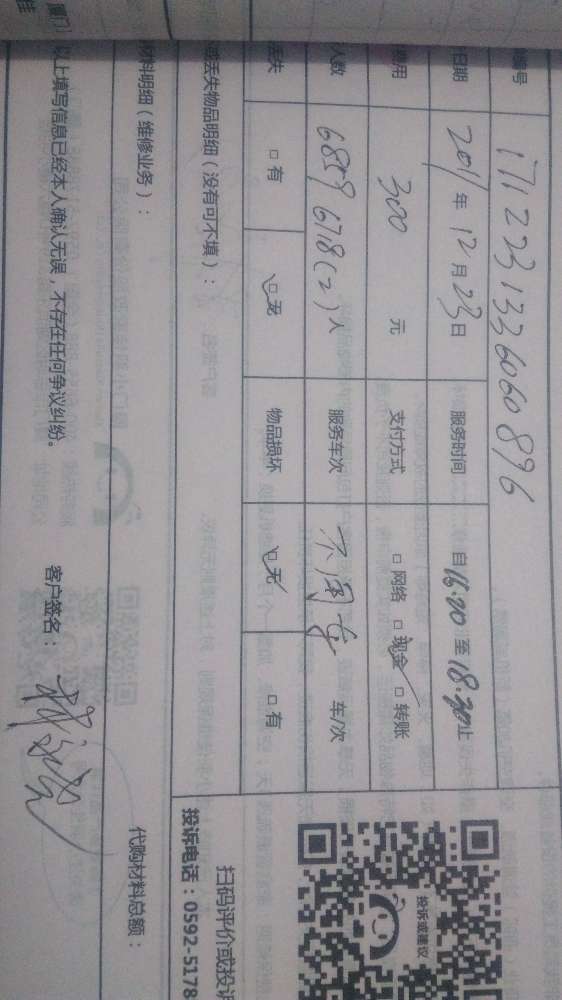 编号 171223133606 0896
日期 2017年12月23日 服务时间 自16:00至18:30止
费用 300 元 支付方式 □网络 □现金 □转账
人数 6859 618(2)人 服务车次 不用车 车/次
丢失 □有 □无 物品损坏 □无 □有
丢失物品明细（没有可不填）：
材料明细（维修业务）：
代购材料总额：
以上填写信息已经本人确认无误，不存在任何争议纠纷。 客户签名：
厦门
投诉或建议
扫码评价或投诉
投诉电话：0592-5178